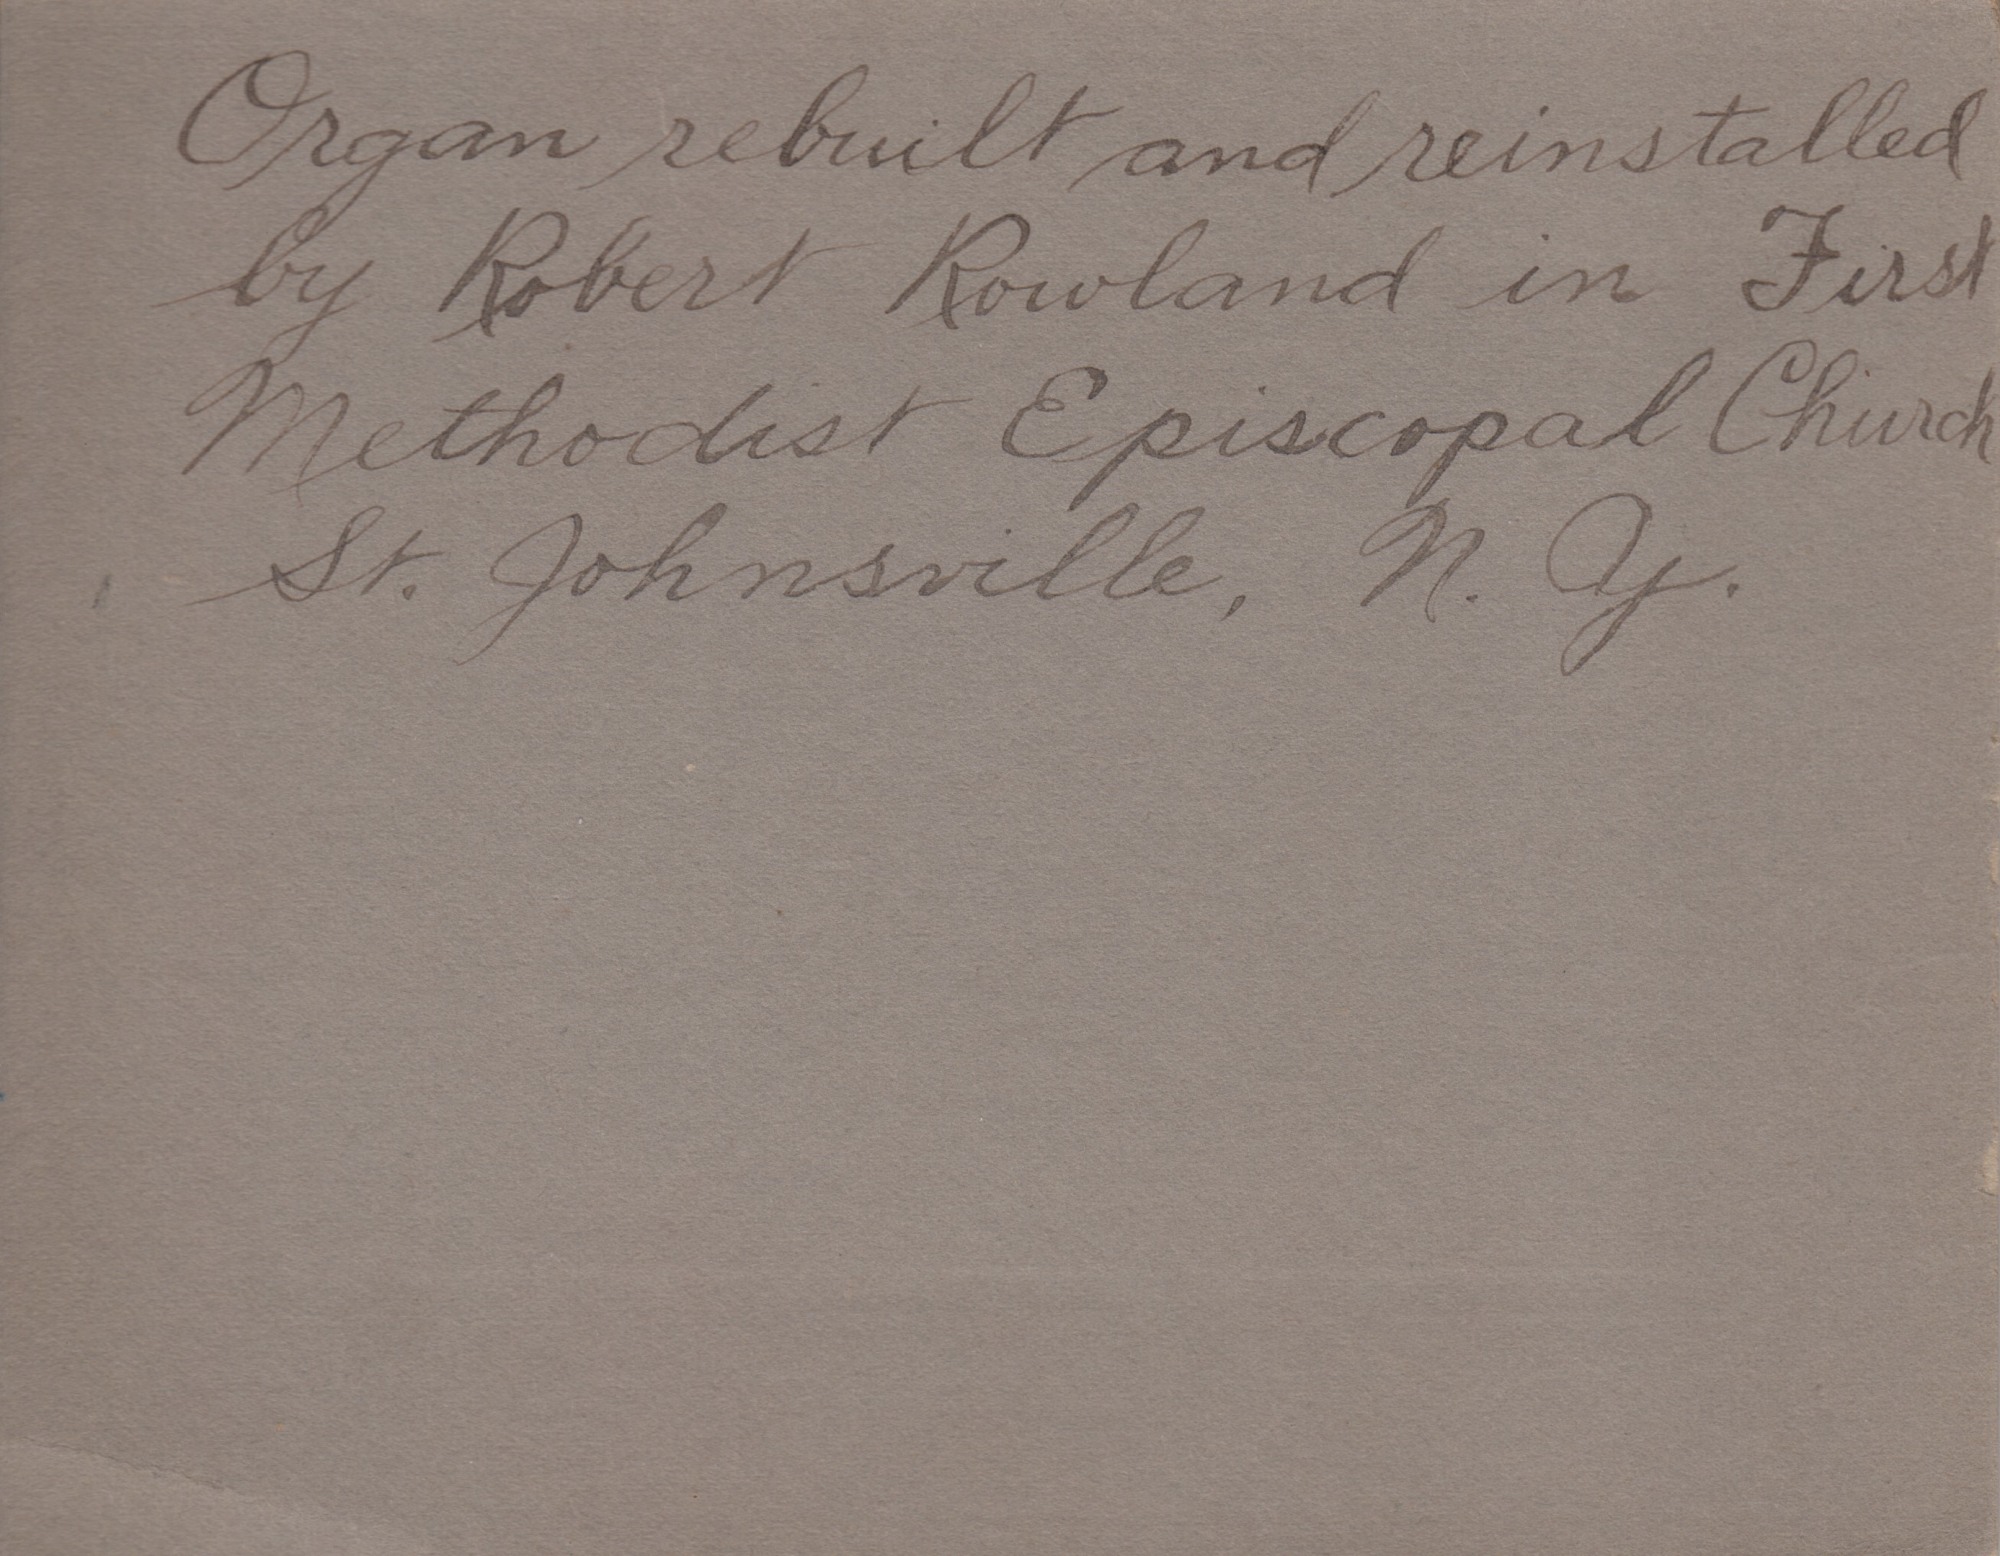 Organ rebuilt and reinstalled
by Robert Rowland in First
Methodist Episcopal Church
St. Johnsville, N. Y.